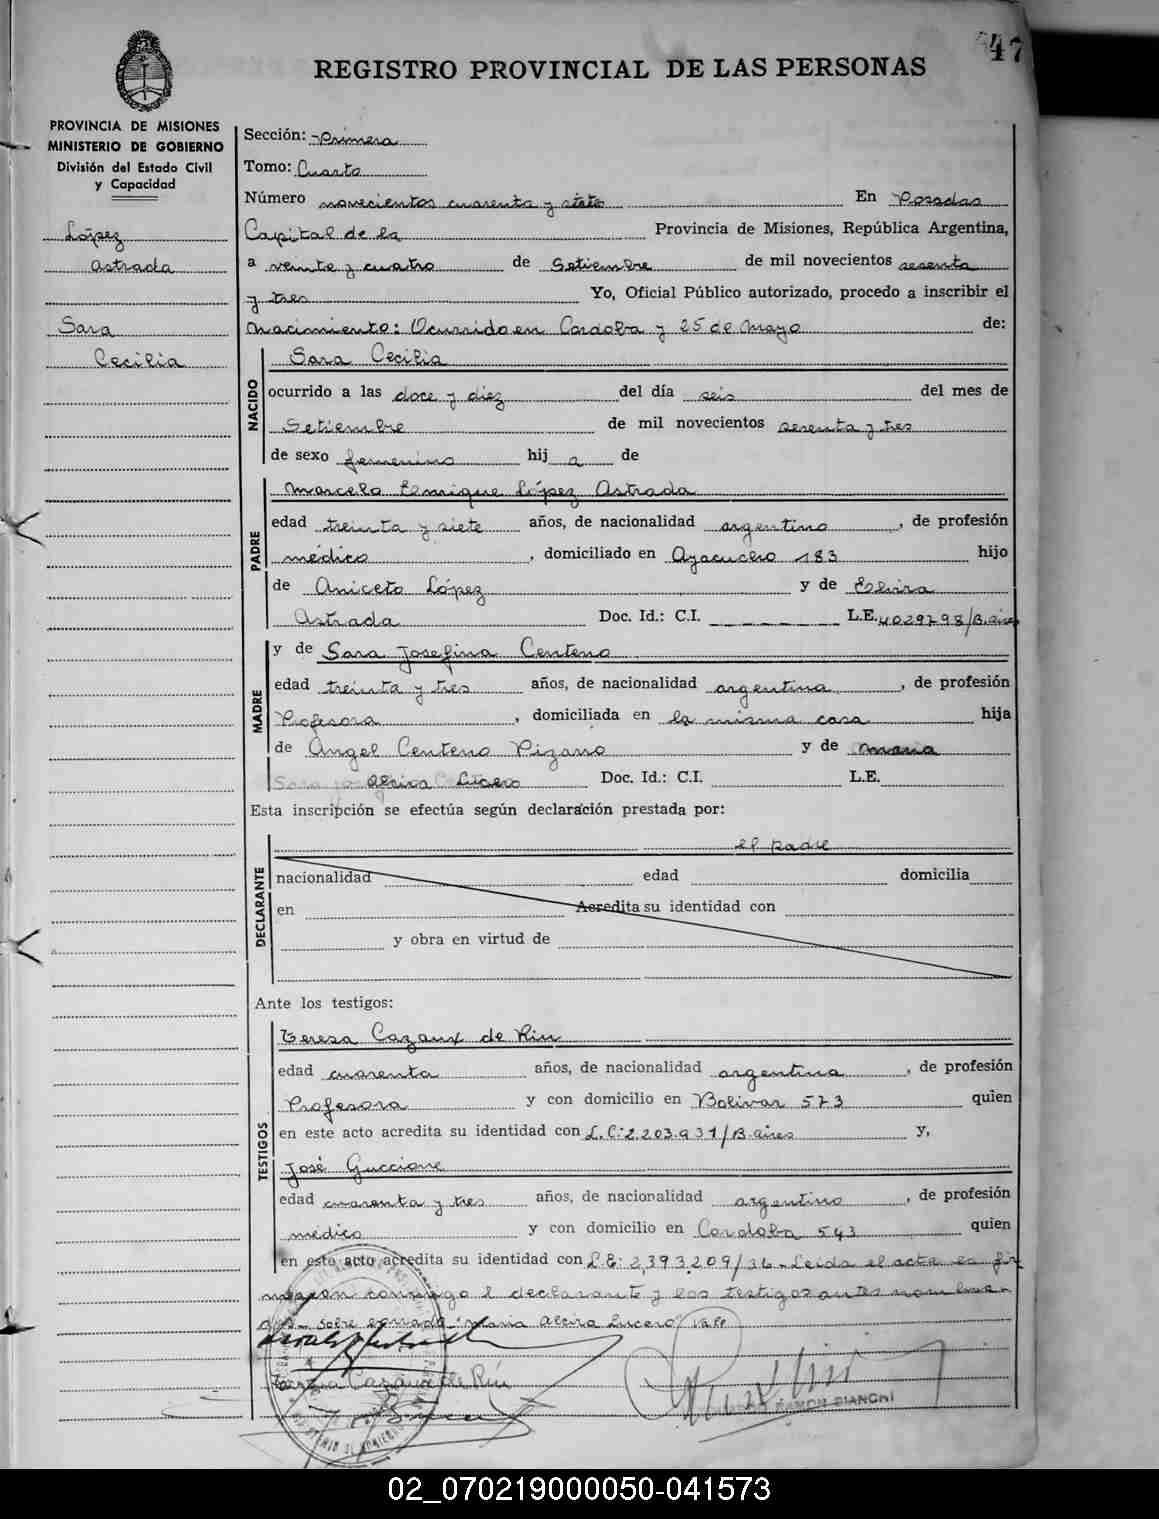 47
REGISTRO PROVINCIAL DE LAS PERSONAS
PROVINCIA DE MISIONES
MINISTERIO DE GOBIERNO
División del Estado Civil
y Capacidad
López
Astrada
Sara
Cecilia
Sección: Primera
Tomo: Cuarto
Número novecientos cuarenta y siete En Posadas
Capital de la Provincia de Misiones, República Argentina,
a veinte y cuatro de Setiembre de mil novecientos sesenta
y tres Yo, Oficial Público autorizado, procedo a inscribir el
Nacimiento: Ocurrido en Cordoba y 25 de Mayo de:
NACIDO
Sara Cecilia
ocurrido a las doce y diez del día seis del mes de
Setiembre de mil novecientos sesenta y tres
de sexo femenino hij a de
PADRE
Marcelo Enrique López Astrada
edad treinta y siete años, de nacionalidad argentino, de profesión
médico, domiciliado en Ayacucho 183 hijo
de Aniceto López y de Elvira
Astrada Doc. Id.: C.I. _ _ _ _ _ _ _ L.E. 4029798/B.aires
MADRE
y de Sara Josefina Centeno
edad treinta y tres años, de nacionalidad argentina, de profesión
Profesora, domiciliada en la misma casa hija
de Angel Centeno Pizano y de Maria
Alcira Lucero Doc. Id.: C.I. L.E.
Esta inscripción se efectúa según declaración prestada por:
DECLARANTE
el padre
nacionalidad edad domicilia
en Acredita su identidad con
y obra en virtud de
Ante los testigos:
TESTIGOS
Teresa Cazaux de Riu
edad cuarenta años, de nacionalidad argentina, de profesión
Profesora y con domicilio en Bolivar 573 quien
en este acto acredita su identidad con L.C: 2.203.931/B.aires y,
José Guccione
edad cuarenta y tres años, de nacionalidad argentino, de profesión
médico y con domicilio en Cordoba 543 quien
en este acto acredita su identidad con L.E: 2,393.209/36 - Leida el acta la fir
maron conmigo el declarante y los testigos antes nombra-
dos - sobre borrado "Maria Alcira Lucero" Vale
Teresa Cazaux de Riu
RAMON BIANCHI
02_070219000050-041573